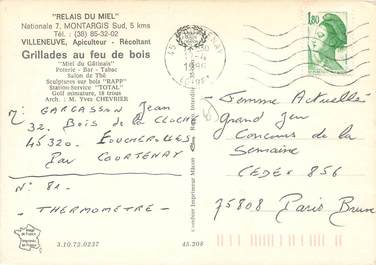 "RELAIS DU MIEL"
Nationale 7, MONTARGIS Sud, 5 kms
Tél. : (38) 85-32-02
VILLENEUVE, Apiculteur - Récoltant
Grillades au feu de bois
"Miel du Gâtinais"
Poterie - Bar - Tabac
Salon de Thé
Sculptures sur bois "RAPP"
Station-Service "TOTAL"
Golf miniature, 18 trous
Arch. : M. Yves CHEVRIER
Mr GARCASSON Jean
32. Bois de la CLOCHE
45320. FOUCHEROLLES
Par COURTENAY
N° 81.
- THERMOMETRE -
3.10.72.0237
45.208
Combier Imprimeur Mâcon
45
1986
LOIRET
1,80
Femme Actuelle
Grand Jeu
Concours de la
Semaine
CEDEX 856
75808 Paris Brune